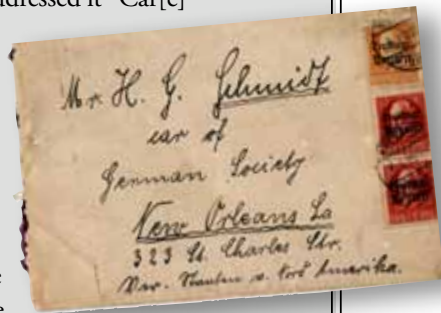 dressed it "Car[e]
Mr. H. G. Schmidt
car of
German Society
New Orleans La
323 St. Charles Str.
Ver. Staaten v. Nord Amerika.